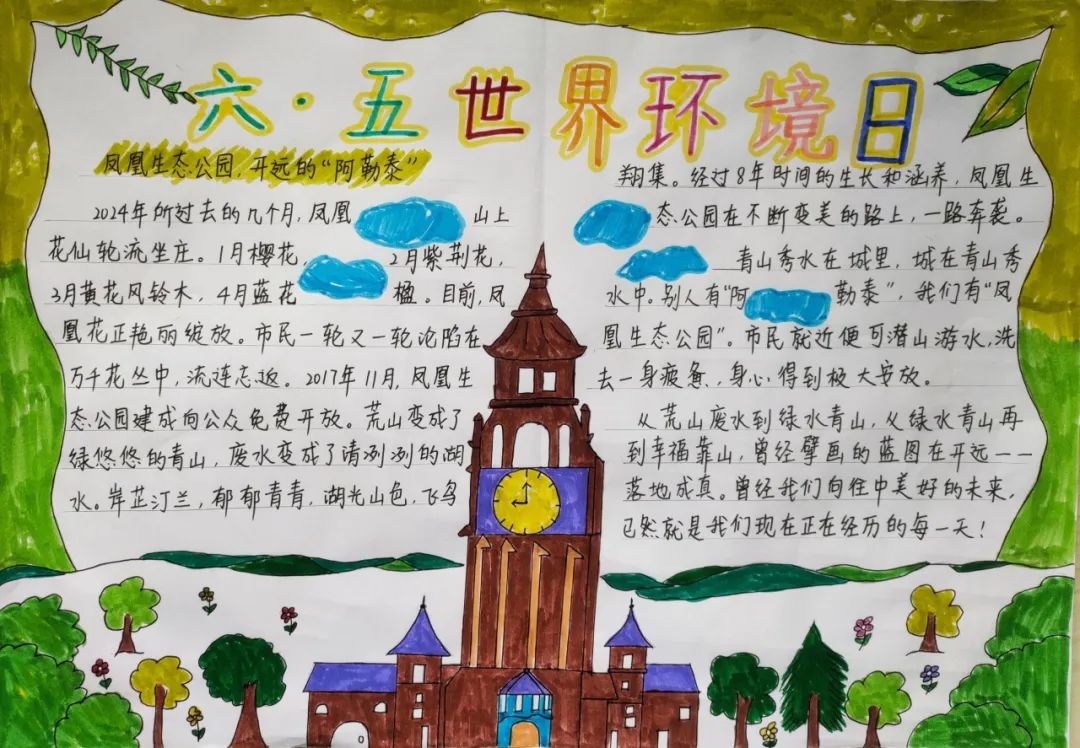 六·五世界环境日
凤凰生态公园,开远的“阿勒泰”
2024年所过去的几个月,凤凰山上
花仙轮流坐庄。1月樱花,2月紫荆花,
3月黄花风铃木,4月蓝花楹。目前,凤
凰花正艳丽绽放。市民一轮又一轮沦陷在
万千花丛中,流连忘返。2017年11月,凤凰生
态公园建成向公众免费开放。荒山变成了
绿悠悠的青山,废水变成了清冽冽的湖
水。岸芷汀兰,郁郁青青,湖光山色,飞鸟
翔集。经过8年时间的生长和涵养,凤凰生
态公园在不断变美的路上,一路奔袭。
青山秀水在城里,城在青山秀
水中。别人有“阿勒泰”,我们有“凤
凰生态公园”。市民就近便可潜山游水,洗
去一身疲惫,身心得到极大安放。
从荒山废水到绿水青山,从绿水青山再
到幸福靠山,曾经擘画的蓝图在开远一一
落地成真。曾经我们向往中美好的未来,
已然就是我们现在正在经历的每一天!